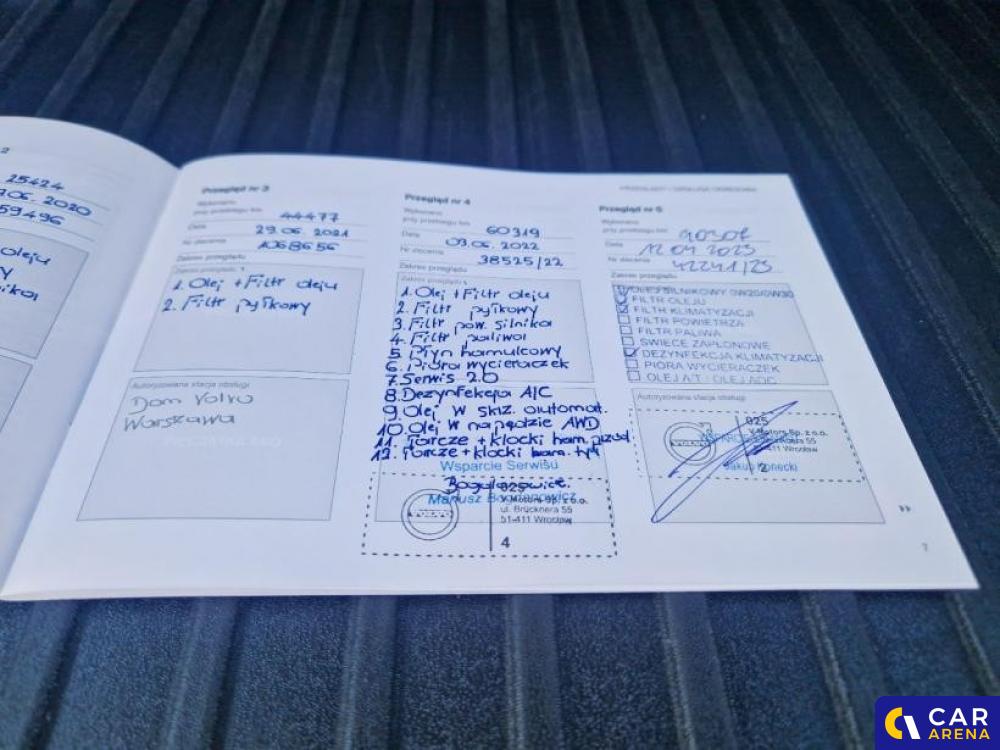 2
25424
06. 2020
59496
oleju
Przegląd nr 3
Wykonano
przy przebiegu km 44477
Data 29.06.2021
Nr zlecenia 1068656
Zakres przeglądu
Zakres przeglądu
1. Olej + Filtr oleju
2. Filtr pyłkowy
Autoryzowana stacja obsługi
Dom Volvo
Warszawa
Przegląd nr 4
Wykonano
przy przebiegu km 60319
Data 03.06.2022
Nr zlecenia 38525/22
Zakres przeglądu
Zakres przeglądu
1. Olej + Filtr oleju
2. Filtr pyłkowy
3. Filtr pow. silnika
4. Filtr paliwa
5. Płyn hamulcowy
6. Pióra wycieraczek
7. Serwis 2.0
8. Dezynfekcja A/C
9. Olej w skrz. automat.
10. Olej w napędzie AWD
11. Tarcze + klocki ham. przód
12. Tarcze + klocki ham. tył
Wsparcie Serwisu
Mariusz Bogdanowicz
025
V-Motors Sp. z o.o.
ul. Brücknera 55
51-411 Wrocław
4
Przegląd nr 5
Wykonano
przy przebiegu km
Data
Nr zlecenia 42241/23
Zakres przeglądu
OLEJ SILNIKOWY 0W20/0W30
FILTR OLEJU
FILTR KLIMATYZACJI
FILTR POWIETRZA
FILTR PALIWA
ŚWIECE ZAPŁONOWE
DEZYNFEKCJA KLIMATYZACJI
PIÓRA WYCIERACZEK
Autoryzowana stacja obsługi
025
V-Motors Sp. z o.o.
Brücknera 55
51-411 Wrocław
VOLVO
Jakub Konecki
2
7
CAR
ARENA